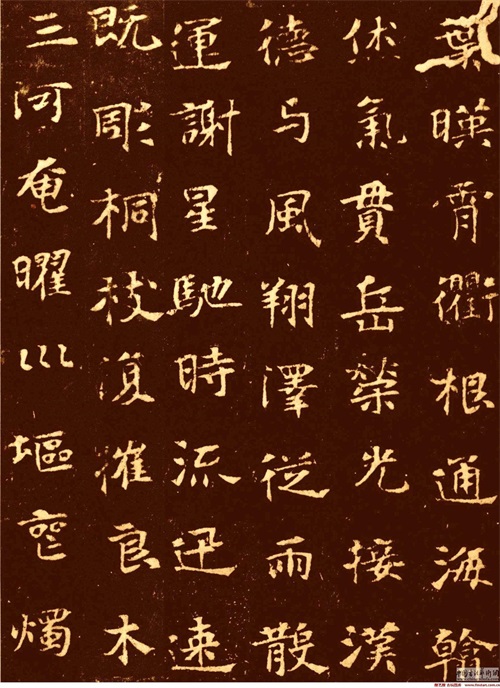 葉暎霄衢根通海翰
烋氣貫岳榮光接漢
德与風翔澤從雨散
運謝星馳時流迅速
既彫桐枝復摧良木
三河奄曜巛塸喪燭